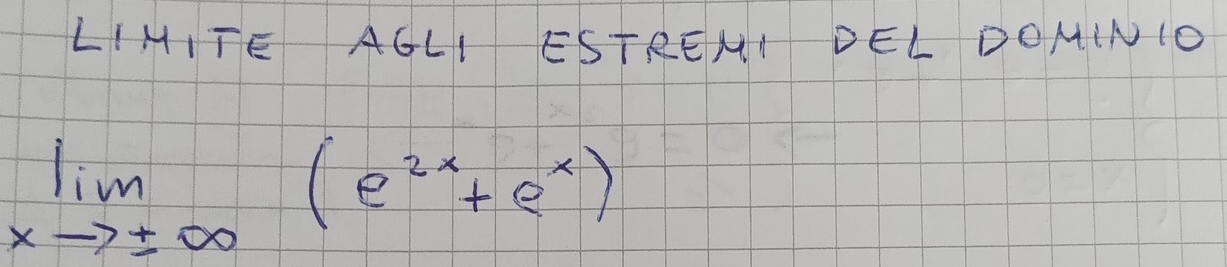 LIMITE AGLI ESTREMI DEL DOMINIO
lim (e^2x + e^x)
x → ± ∞